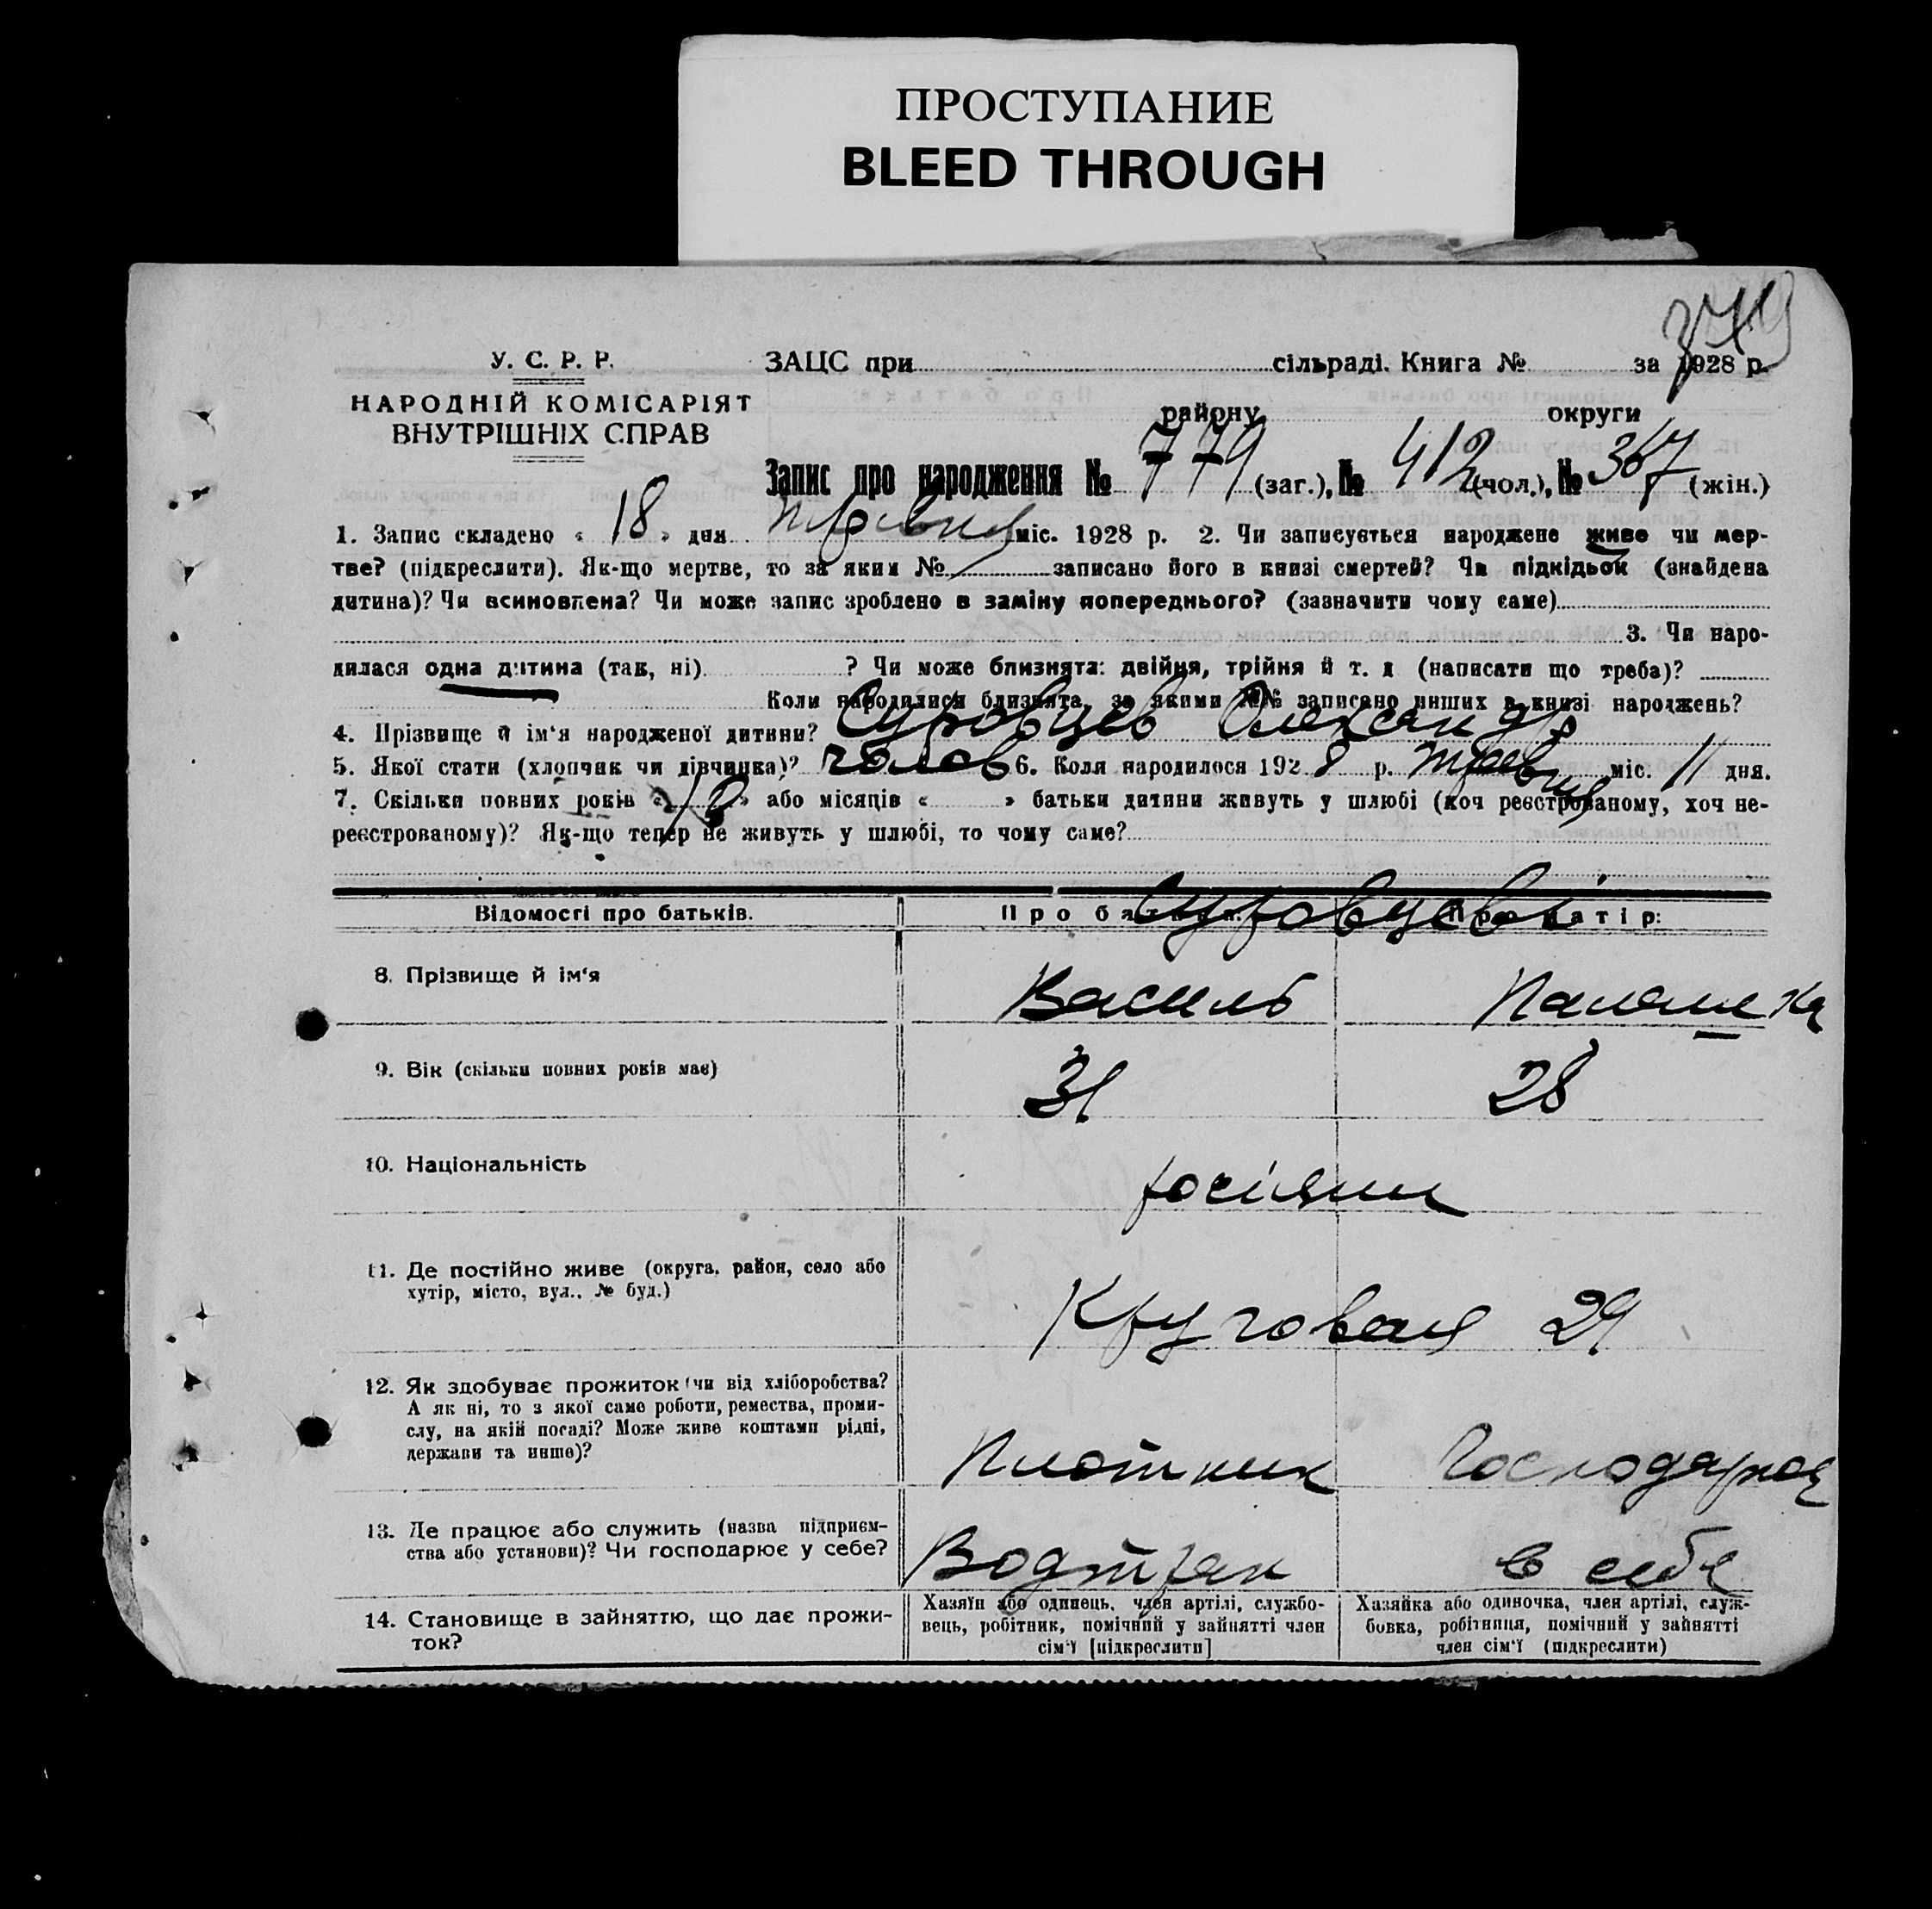 ПРОСТУПАНИЕ
BLEED THROUGH
У. С. Р. Р.
НАРОДНІЙ КОМІСАРІЯТ
ВНУТРІШНІХ СПРАВ
ЗАЦС при сільраді. Книга № за 1928 р.
району округи
Запис про народження № 779 (заг.), № 412 (чол.), № 367 (жін.)
1. Запис складено « 18 » дня травня міс. 1928 р. 2. Чи записується народжене живе чи мер-
тве? (підкреслити). Як-що мертве, то за яким № записано його в книзі смертей? Чи підкідьок (знайдена
дитина)? Чи всиновлена? Чи може запис зроблено в заміну попереднього? (зазначити чому саме)
3. Чи наро-
дилася одна дитина (так, ні) ? Чи може близнята: двійня, трійня й т. д (написати що треба)?
Коли народилися близнята, за якими №№ записано инших в книзі народжень?
4. Прізвище й ім‘я народженої дитини? Суровцев Олександр
5. Якої стати (хлопчик чи дівчинка)? чолов 6. Коли народилося 1928 р. травня міс. 11 дня.
7. Скільки повних років « » або місяців « » батьки дитини живуть у шлюбі (хоч реєстрованому, хоч не-
реєстрованому)? Як-що тепер не живуть у шлюбі, то чому саме?
Відомості про батьків. Про батька: Про матір:
Суровцеві
8. Прізвище й ім‘я Василь Палашка
9. Вік (скільки повних років має) 31 28
10. Національність росіяни
11. Де постійно живе (округа, район, село або
хутір, місто, вул., № буд.)
Круговая 29
12. Як здобуває прожиток (чи від хліборобства?
А як ні, то з якої саме роботи, ремества, проми-
слу, на якій посаді? Може живе коштами рідні,
держави та инше)?
Плотник Господарює
13. Де працює або служить (назва підприєм-
ства або установи)? Чи господарює у себе?
Водтран в себе
14. Становище в зайняттю, що дає прожи-
ток?
Хазяїн або одинець, член артілі, службо-
вець, робітник, помічний у зайнятті член
сім‘ї [підкреслити]
Хазяйка або одиночка, член артілі, служ-
бовка, робітниця, помічний у зайнятті
член сім‘ї (підкреслити)